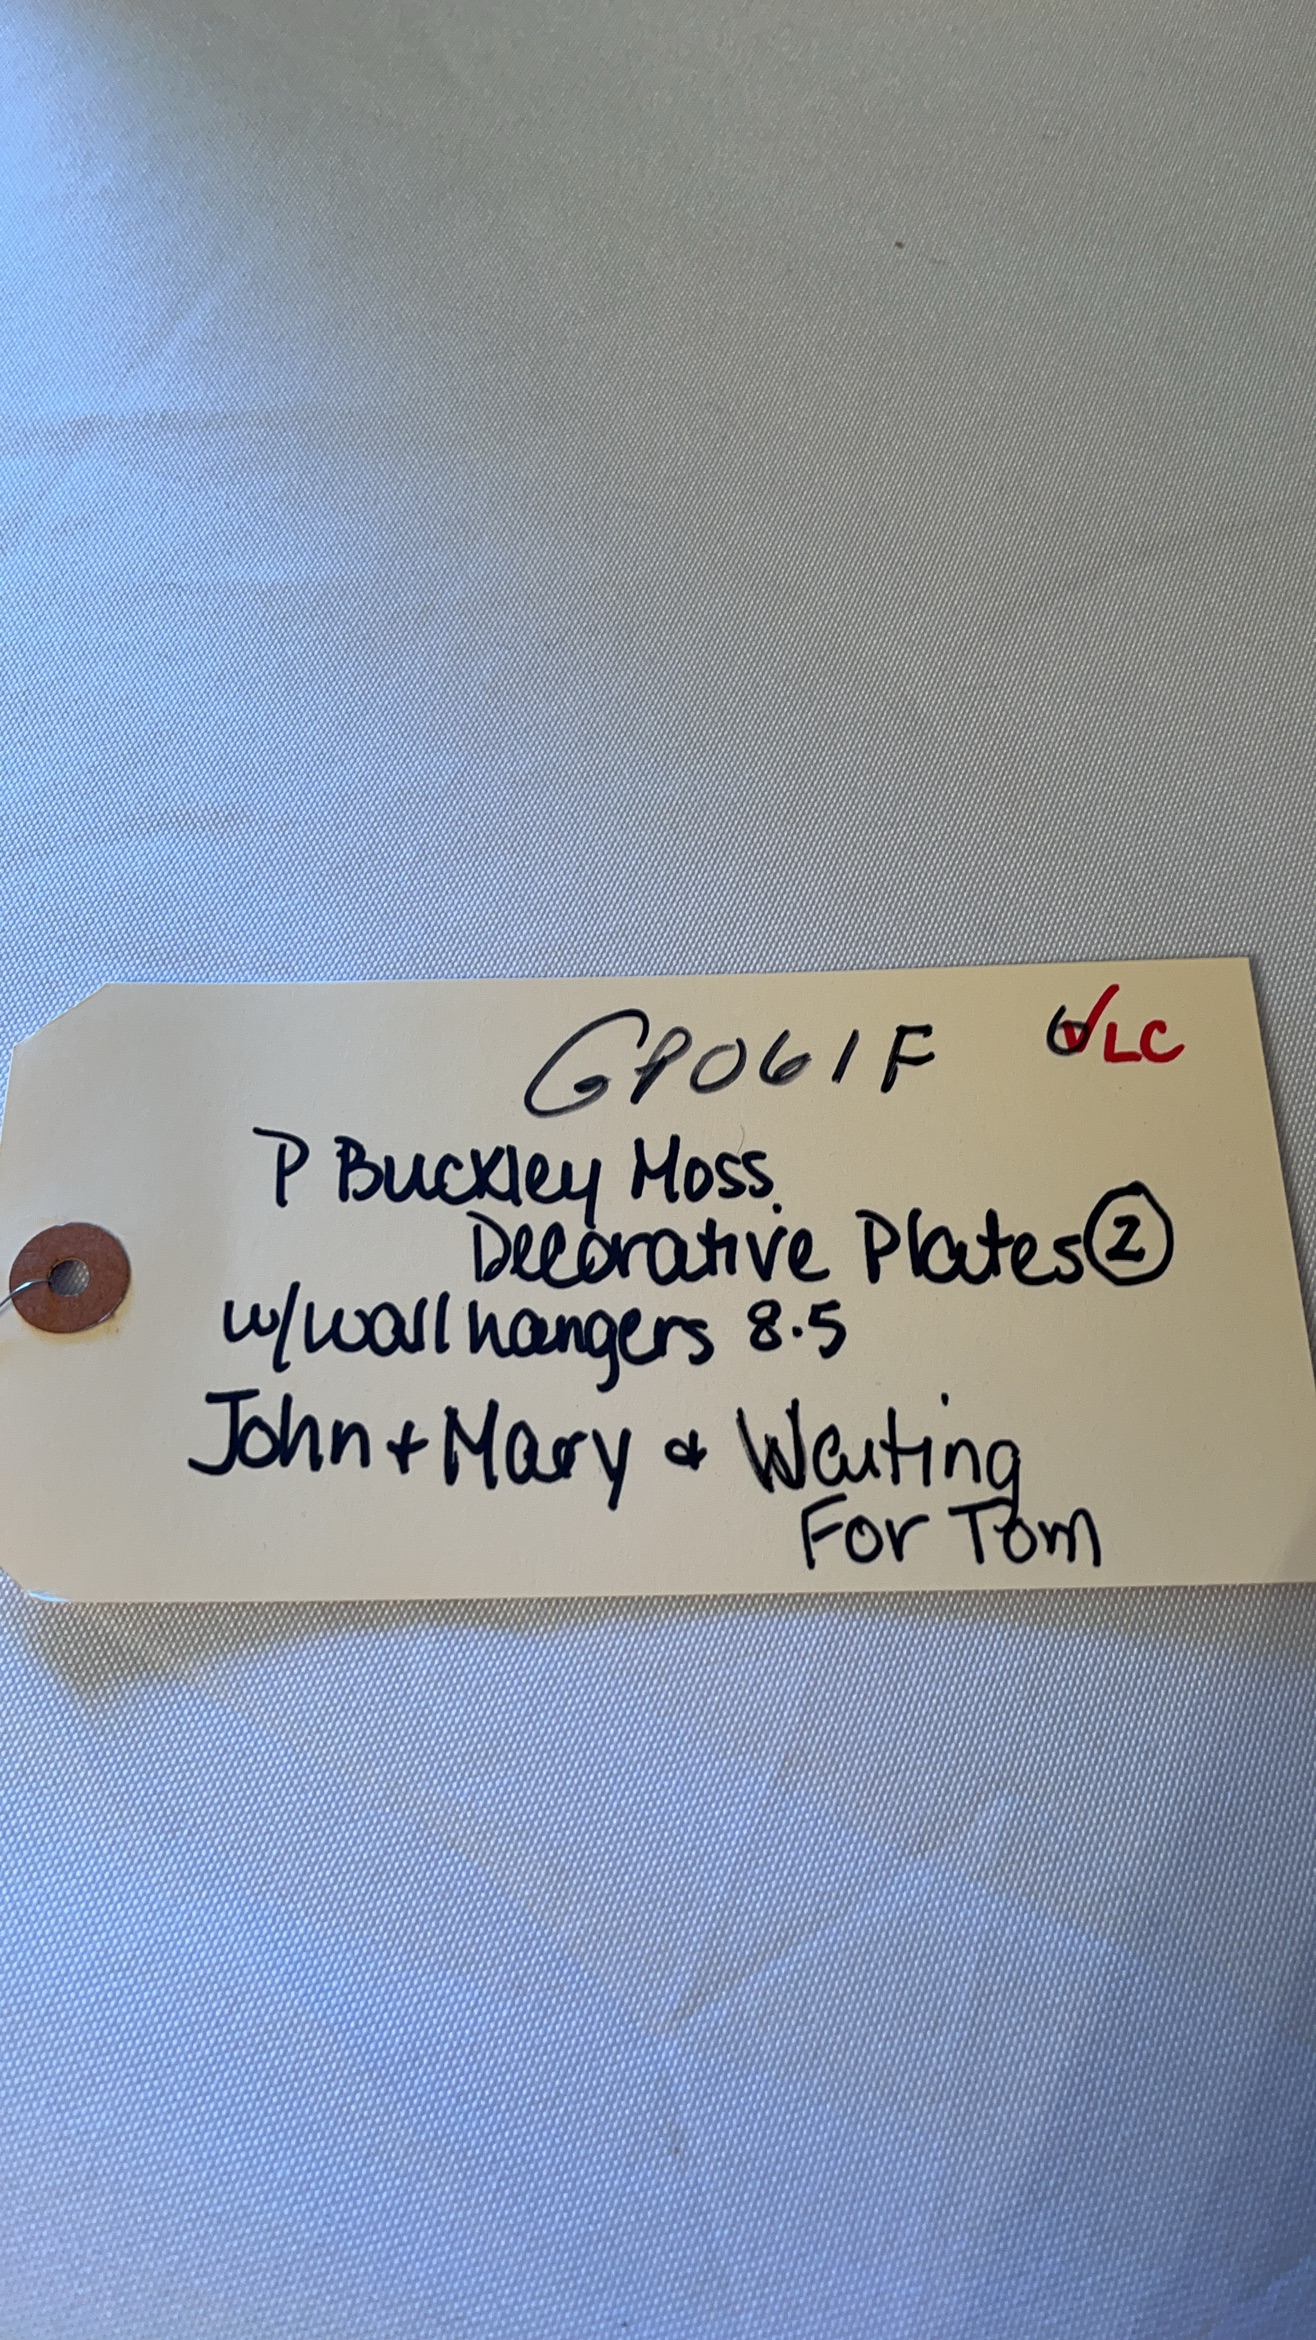 GP061F 6✓LC
P Buckley Moss
Decorative Plates ②
w/wall hangers 8.5
John + Mary & Waiting
For Tom